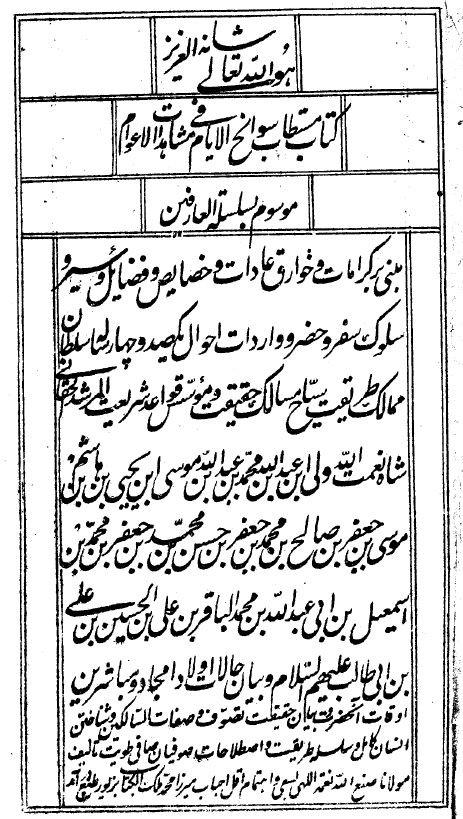 هو الله تعالی شانه العزیز
کتاب مستطاب سوانح الایام فی مشاهدات الاعوام
موسوم بسلسلة العارفین
مبنی بر کرامات و خوارق عادات و خصایص و فضایل و سیر و
سلوک سفر و حضر و واردات احوال یکصد و چهار ساله سلطان
ممالک طریقت سیاح مسالک حقیقت و مؤسس قواعد شریعت المرشد الحقانی
شاه نعمت الله ولی ابن عبدالله بن محمد بن عبدالله بن موسی ابن یحیی بن هاشم بن
موسی بن جعفر بن صالح بن محمد بن جعفر بن حسن بن محمد بن جعفر بن محمد بن
اسمعیل بن ابی عبدالله بن محمد الباقر بن علی بن الحسین بن علی
بن ابی طالب علیهم السلام و بیان حالات اولاد امجاد و مباشرین
اوقات آنحضرت و بیان حقیقت تصوف و صفات السالکین و شناختن
انسان کامل و سلسله طریقت و اصطلاحات صوفیان صافی طویت تالیف
مولانا صنع الله نعمة اللهی بسعی و اهتمام اقل احباب میرزا محمد ملک الکتاب زیور طبع